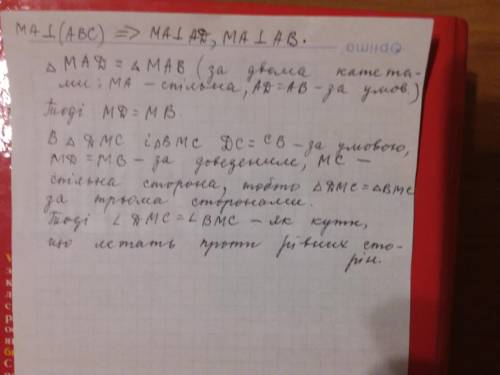 MA⊥(ABC) => MA⊥AD, MA⊥AB.
△MAD = △MAB (за двома катета-
ми: MA – спільна, AD=AB – за умов.)
Тоді MD = MB.
В △DMC і △BMC DC = CB – за умовою,
MD = MB – за доведеним, MC –
спільна сторона, тобто △DMC = △BMC
за трьома сторонами.
Тоді ∠DMC = ∠BMC – як кути,
що лежать проти рівних сто-
рін.